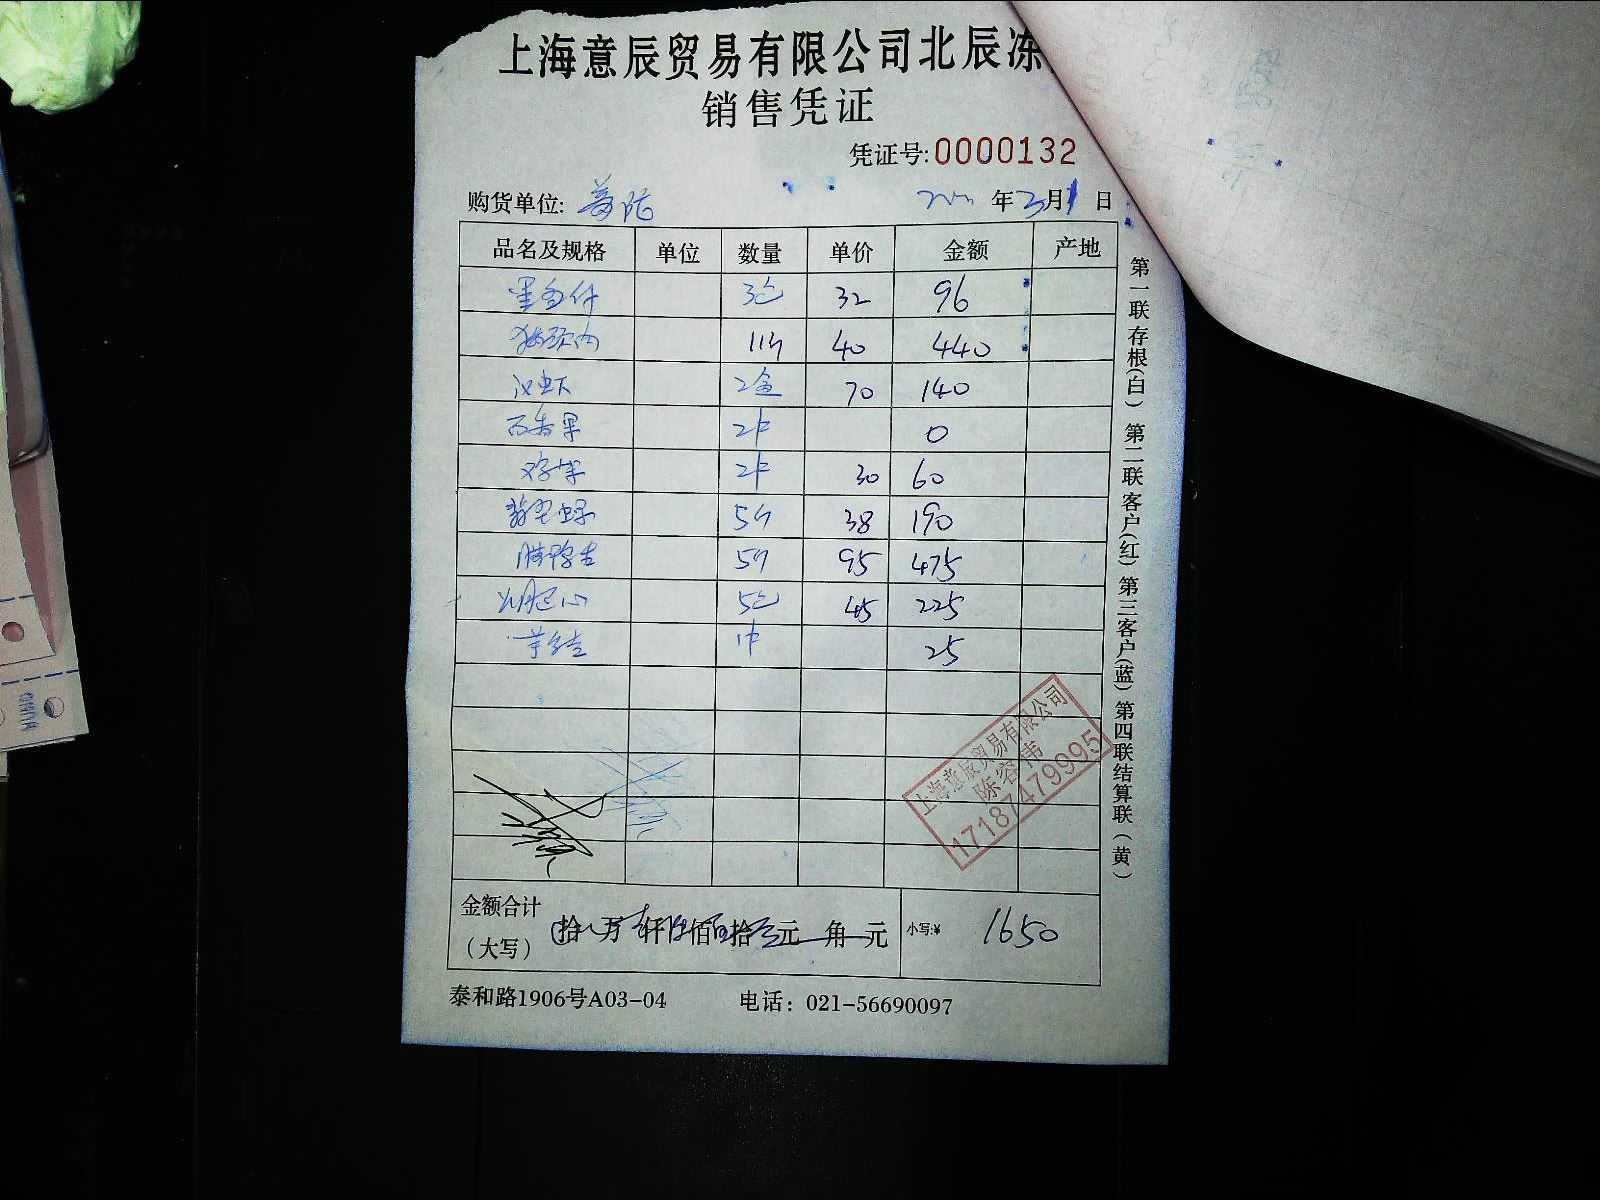 上海意辰贸易有限公司北辰冻
销售凭证
凭证号:0000132
购货单位: 年3月1日
品名及规格 单位 数量 单价 金额 产地
3包 32 96
11斤 40 440
汉虾 2盒 70 140
百香果 2件 0
2件 30 60
翡翠螺 5斤 38 190
5斤 95 475
5包 45 225
1件 25
金额合计
(大写)
拾 万 仟 佰 拾 元 角 元
小写:¥ 1650
泰和路1906号A03-04 电话: 021-56690097
第一联存根(白) 第二联客户(红) 第三客户(蓝) 第四联结算联(黄)
上海意辰贸易有限公司
陈容伟
17187479995